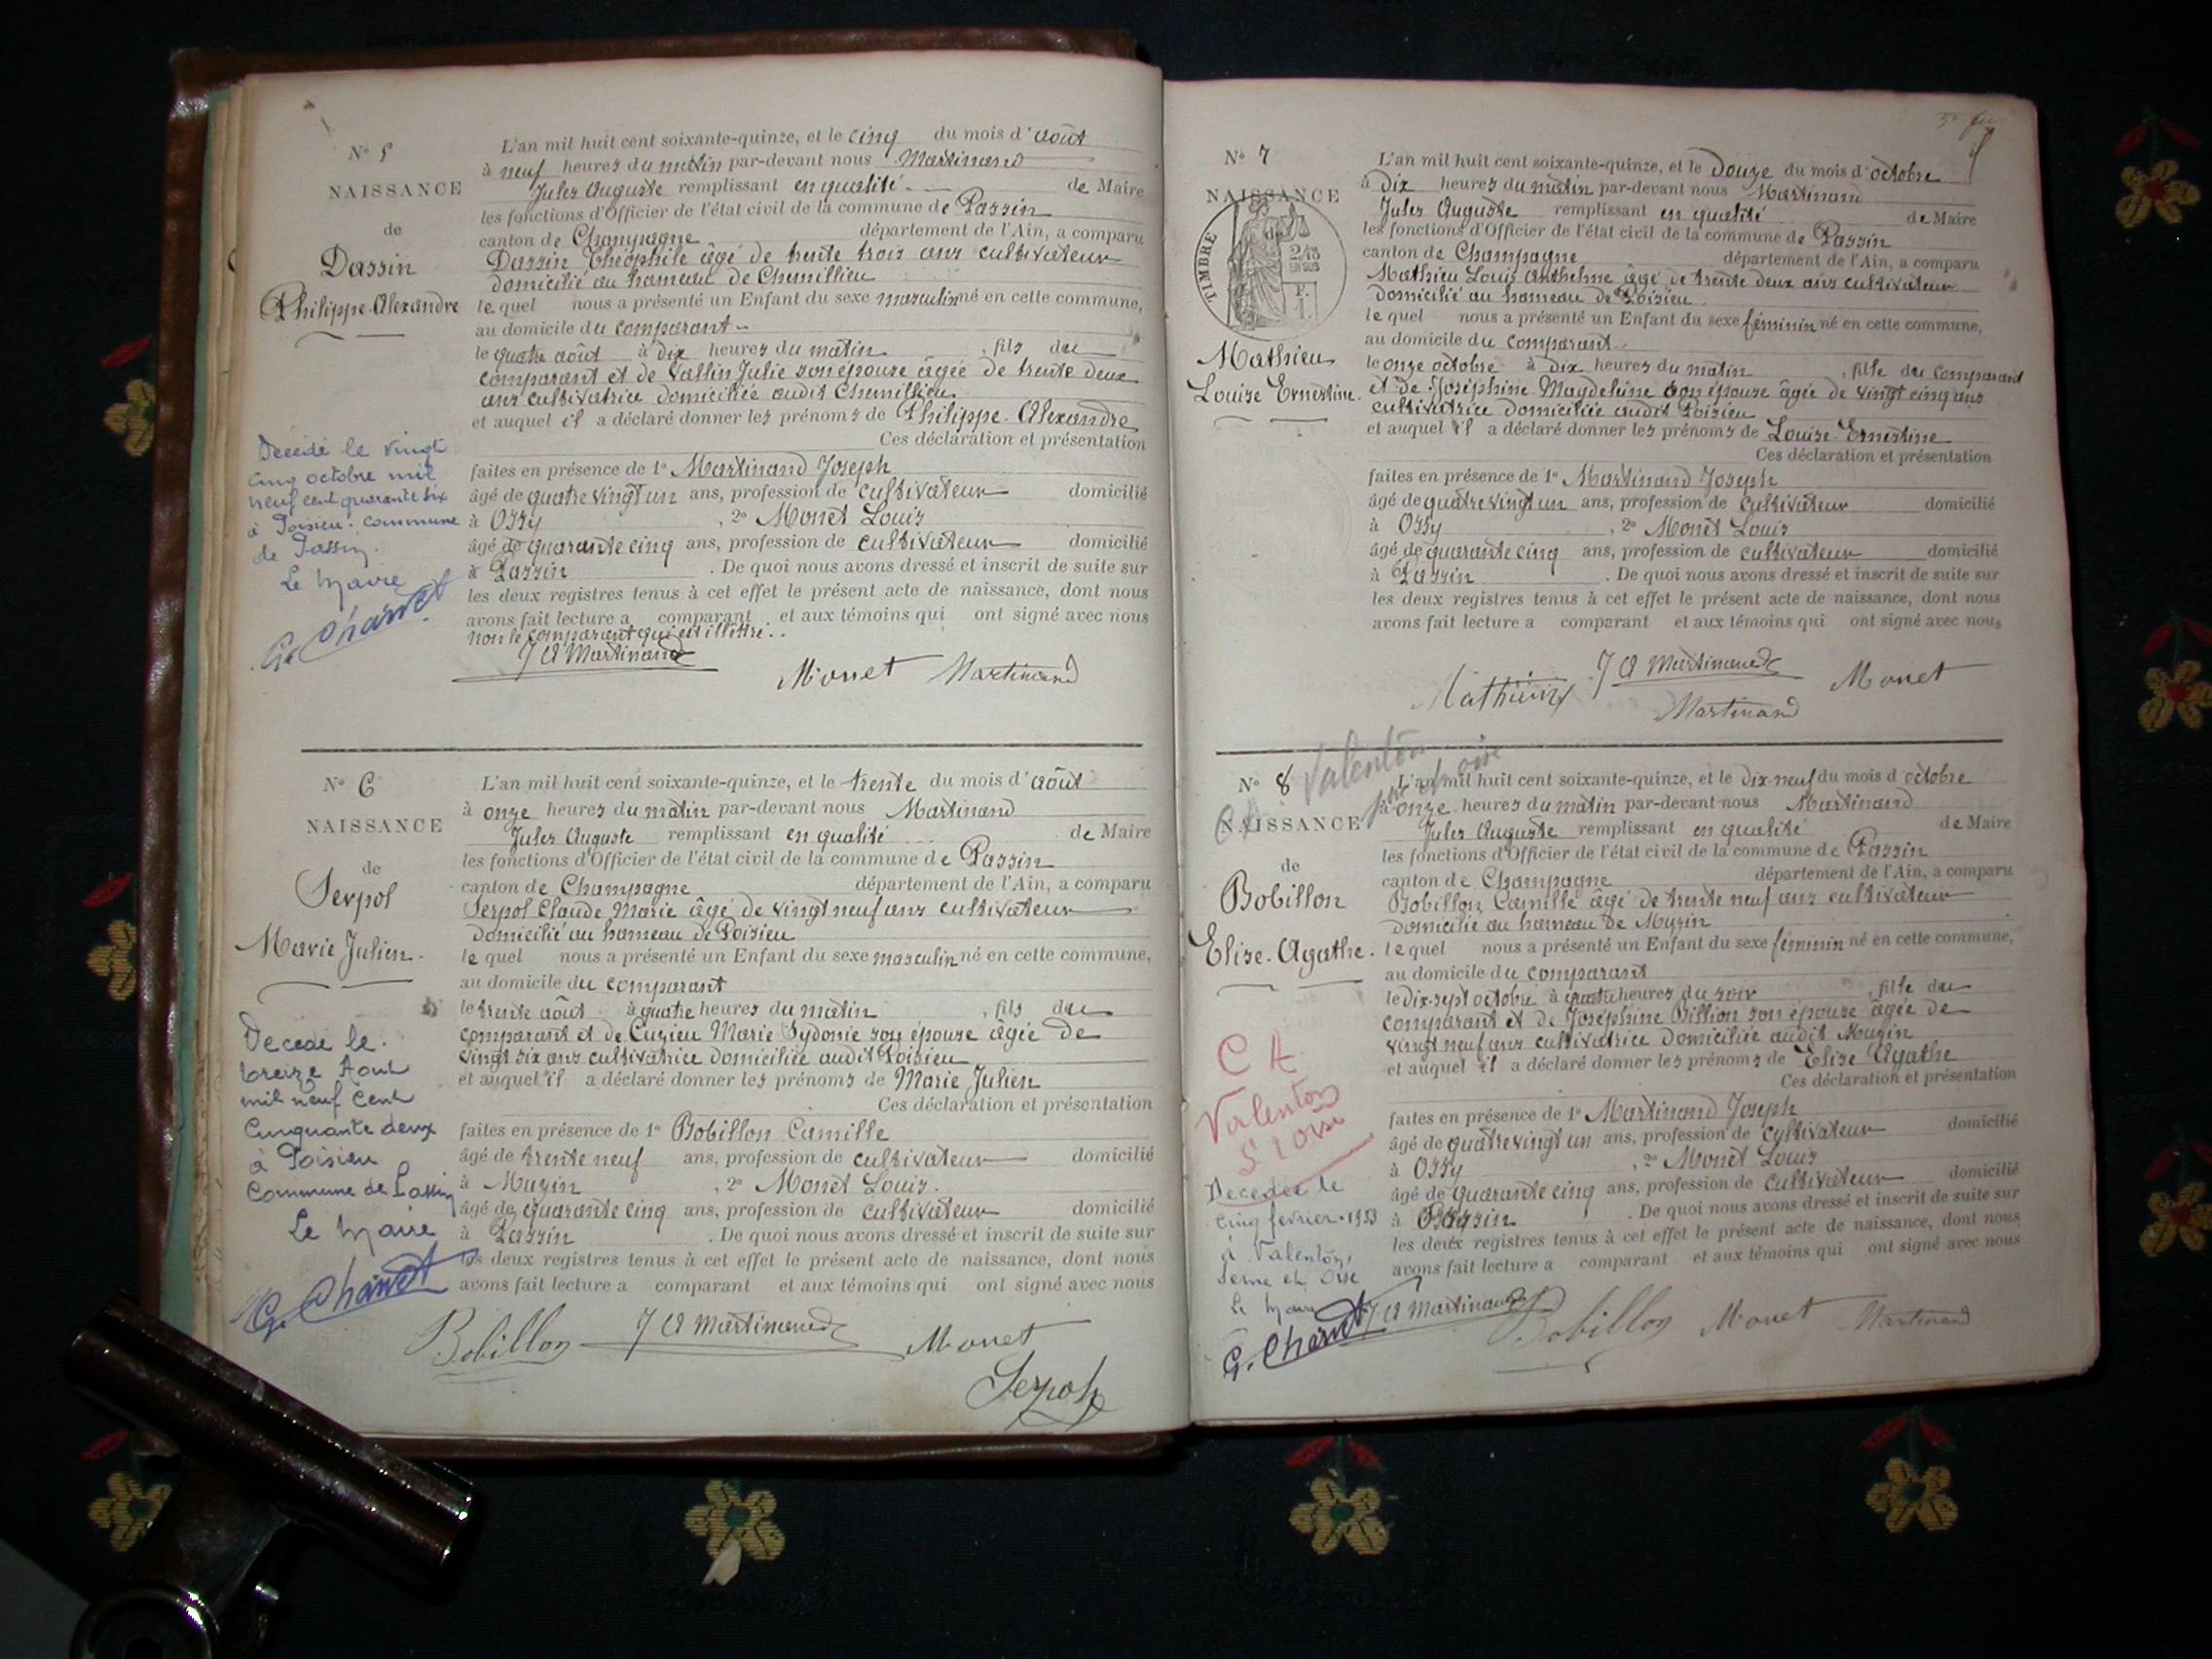 N° 5
NAISSANCE
de
Dassin
Philippe Alexandre
L'an mil huit cent soixante-quinze, et le cinq du mois d'août
à neuf heures du matin par-devant nous Martinand
Jules Auguste remplissant en qualité de Maire
les fonctions d'Officier de l'état civil de la commune de Passin
canton de Champagne département de l'Ain, a comparu
Dassin Théophile âgé de trente trois ans cultivateur
domicilié au hameau de Chemillieu
le quel nous a présenté un Enfant du sexe masculin né en cette commune,
au domicile du comparant
le quatre août à dix heures du matin, fils du
comparant et de Vallin Julie son épouse âgée de trente deux
ans cultivatrice domiciliée audit Chemillieu
et auquel il a déclaré donner les prénoms de Philippe Alexandre
Ces déclaration et présentation
faites en présence de 1° Martinand Joseph
âgé de quatre vingt un ans, profession de cultivateur domicilié
à Ossy, 2° Monet Louis
âgé de quarante cinq ans, profession de cultivateur domicilié
à Passin. De quoi nous avons dressé et inscrit de suite sur
les deux registres tenus à cet effet le présent acte de naissance, dont nous
avons fait lecture a comparant et aux témoins qui ont signé avec nous
non le comparant qui est illettré.
J A Martinand
Monet Martinand
Décédé le vingt
cinq octobre mil
neuf cent quarante six
à Poisieu. commune
de Passin.
Le Maire
N° 6
NAISSANCE
de
Serpol
Marie Julien.
L'an mil huit cent soixante-quinze, et le trente du mois d'août
à onze heures du matin par-devant nous Martinand
Jules Auguste remplissant en qualité de Maire
les fonctions d'Officier de l'état civil de la commune de Passin
canton de Champagne département de l'Ain, a comparu
Serpol Claude Marie âgé de vingt neuf ans cultivateur
domicilié au hameau de Poisieu
le quel nous a présenté un Enfant du sexe masculin né en cette commune,
au domicile du comparant
le trente août à quatre heures du matin, fils du
comparant et de Cuzieu Marie Sydonie son épouse âgée de
vingt six ans cultivatrice domiciliée audit Poisieu
et auquel il a déclaré donner les prénoms de Marie Julien
Ces déclaration et présentation
faites en présence de 1° Bobillon Camille
âgé de trente neuf ans, profession de cultivateur domicilié
à Muzin, 2° Monet Louis.
âgé de quarante cinq ans, profession de cultivateur domicilié
à Passin. De quoi nous avons dressé et inscrit de suite sur
les deux registres tenus à cet effet le présent acte de naissance, dont nous
avons fait lecture a comparant et aux témoins qui ont signé avec nous
Bobillon J A Martinand Monet
Serpol
Decedé le
treize Aout
mil neuf Cent
Cinquante deux
à Poisieu
Commune de Passin
Le Maire
N° 7
NAISSANCE
de
TIMBRE
2/10
EN SUS
Mathieu
Louise Ernestine.
L'an mil huit cent soixante-quinze, et le douze du mois d'octobre
à dix heures du matin par-devant nous Martinand
Jules Auguste remplissant en qualité de Maire
les fonctions d'Officier de l'état civil de la commune de Passin
canton de Champagne département de l'Ain, a comparu
Mathieu Louis Anthelme âgé de trente deux ans cultivateur
domicilié au hameau de Poisieu
le quel nous a présenté un Enfant du sexe féminin né en cette commune,
au domicile du comparant.
le onze octobre à dix heures du matin, fille du comparant
et de Joséphine Magdeleine son épouse âgée de vingt cinq ans
cultivatrice domiciliée audit Poisieu
et auquel il a déclaré donner les prénoms de Louise Ernestine
Ces déclaration et présentation
faites en présence de 1° Martinand Joseph
âgé de quatre vingt un ans, profession de cultivateur domicilié
à Ossy, 2° Monet Louis
âgé de quarante cinq ans, profession de cultivateur domicilié
à Passin. De quoi nous avons dressé et inscrit de suite sur
les deux registres tenus à cet effet le présent acte de naissance, dont nous
avons fait lecture a comparant et aux témoins qui ont signé avec nous
Mathieu J A Martinand Monet
Martinand
Valenton
N° 8
NAISSANCE
de
Bobillon
Elise. Agathe.
L'an mil huit cent soixante-quinze, et le dix-neuf du mois d octobre
à onze heures du matin par-devant nous Martinand
Jules Auguste remplissant en qualité de Maire
les fonctions d'Officier de l'état civil de la commune de Passin
canton de Champagne département de l'Ain, a comparu
Bobillon Camille âgé de trente neuf ans cultivateur
domicilié au hameau de Muzin
le quel nous a présenté un Enfant du sexe féminin né en cette commune,
au domicile du comparant
le dix-sept octobre à quatre heures du soir, fille du
comparant et de Joséphine Billion son épouse âgée de
vingt neuf ans cultivatrice domiciliée audit Muzin
et auquel il a déclaré donner les prénoms de Elise Agathe
Ces déclaration et présentation
faites en présence de 1° Martinand Joseph
âgé de quatre vingt un ans, profession de cultivateur domicilié
à Ossy, 2° Monet Louis
âgé de quarante cinq ans, profession de cultivateur domicilié
à Passin. De quoi nous avons dressé et inscrit de suite sur
les deux registres tenus à cet effet le présent acte de naissance, dont nous
avons fait lecture a comparant et aux témoins qui ont signé avec nous
J A Martinand Bobillon Monet Martinand
C A
Valenton
S / Oise
Decedée le
cinq fevrier 1953
à Valenton,
Seine et Oise
Le Maire